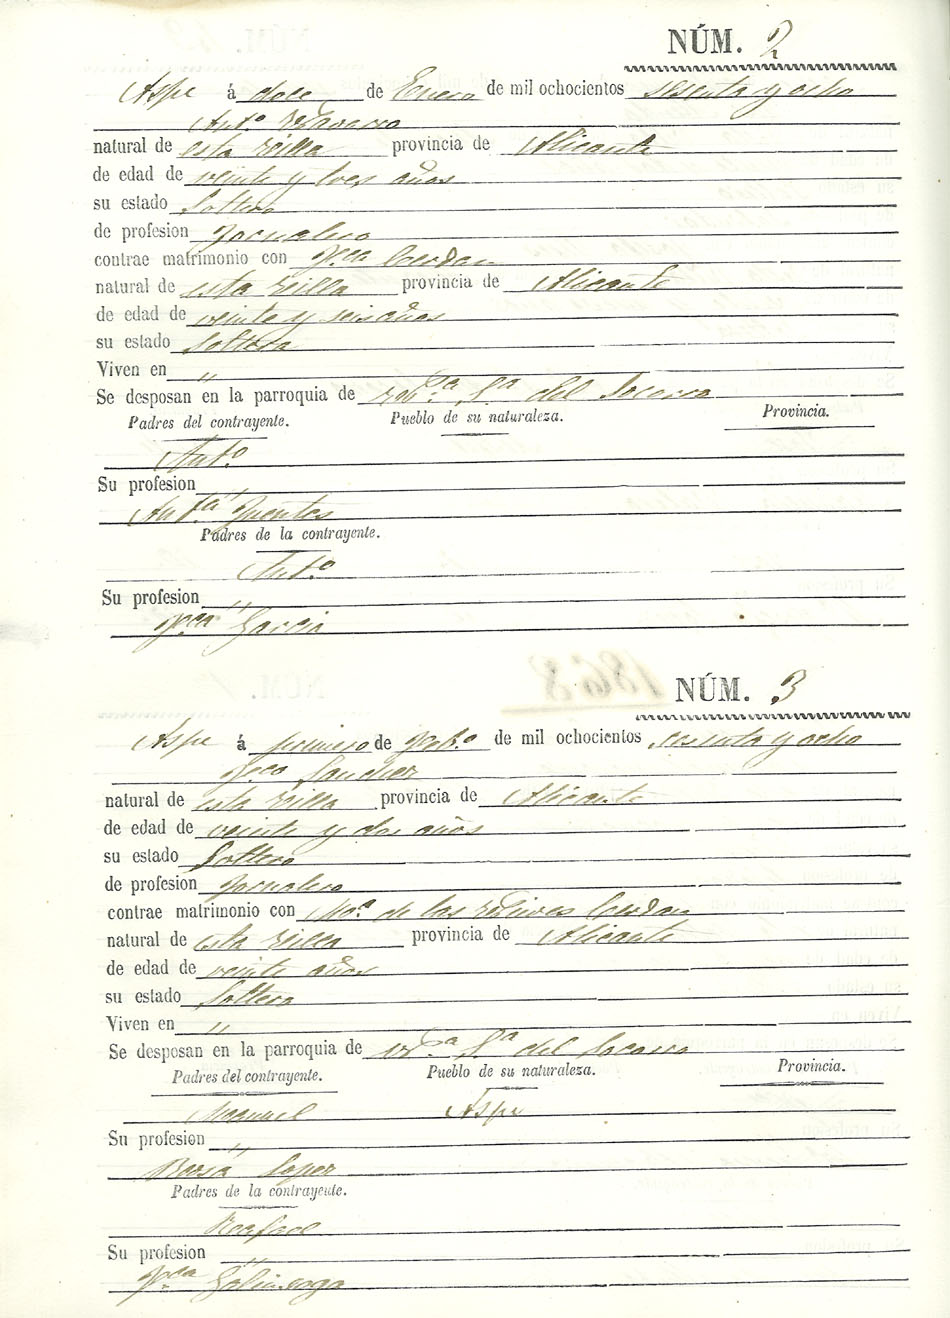 NÚM. 2
Aspe á doce de Enero de mil ochocientos sesenta y ocho
Antº Navarro
natural de esta Villa provincia de Alicante
de edad de veinte y tres años
su estado Soltero
de profesion Jornalero
contrae matrimonio con Fca Cerdan
natural de esta Villa provincia de Alicante
de edad de veinte y seis años
su estado Soltera
Viven en "
Se desposan en la parroquia de Sª del Socorro
Padres del contrayente. Pueblo de su naturaleza. Provincia.
Antº
Su profesion "
Antª Fuentes
Padres de la contrayente.
Antº
Su profesion "
Fca Garcia
1868
NÚM. 3
Aspe á primero de Febº de mil ochocientos sesenta y ocho
Fco Sanchez
natural de esta Villa provincia de Alicante
de edad de veinte y dos años
su estado Soltero
de profesion Jornalero
contrae matrimonio con Mª de las Nieves Cerdan
natural de esta Villa provincia de Alicante
de edad de veinte años
su estado Soltera
Viven en "
Se desposan en la parroquia de Sª del Socorro
Padres del contrayente. Pueblo de su naturaleza. Provincia.
Manuel Aspe
Su profesion "
Lopez
Padres de la contrayente.
Rafael
Su profesion "
Fca Galinsoga